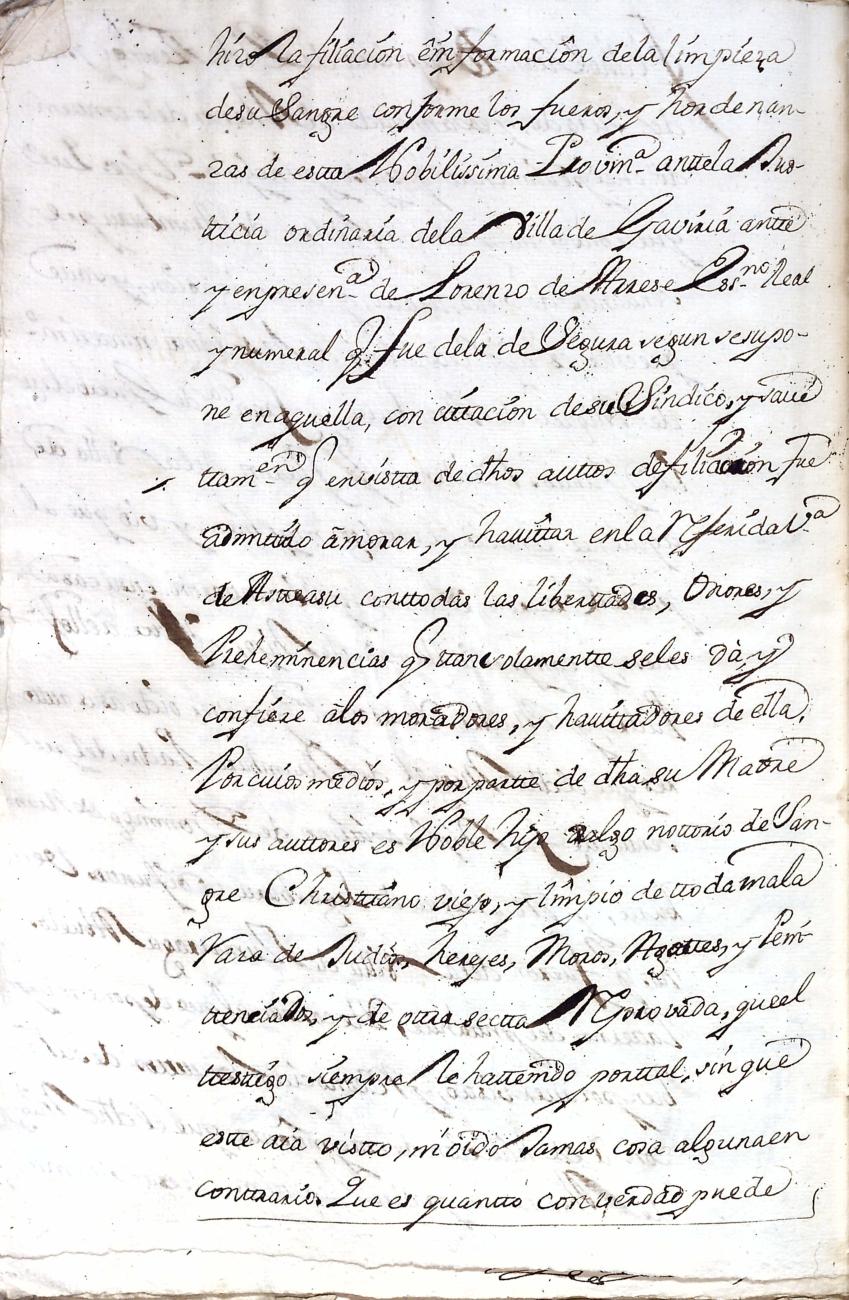 hizo la filiación êm formación de la limpieza
de su Sangre conforme los fueros, y hordenan-
zas de estta Nobilissima Provinª antte la Jus-
tticia ordinaria de la Villa de Gaviria antte
y en presenª de Lorenzo de Arrese Essno Real
y numeral q fue de la de Segura segun se supo-
ne en aquella, con cittacion de su Sindico, y save
ttamen q en vistta de dhos auttos de filiacion fue
admittido â morar, y havittar en la Referida Vª
de Astteasu con ttodas las liberttades, Onores, y
Prehemınencias q ttan solamentte se les dà, y
confiere a los moradores, y havittadores de ella,
Por cuios medios, y por partte de dha su Madre
y sus auttores es Noble hijo dalgo nottorio de San-
gre Christtiano viejo, y limpio de ttoda mala
Raza de Judios, herejes, Moros, Agottes, y Peni-
ttenciados, y de ottra sectta Reprovada, que el
ttesttigo siempre le ha ttenido por ttal, sin que
estte aia vistto, ni oido Jamas cosa alguna en
conttrario. Que es quantto con verdad puede